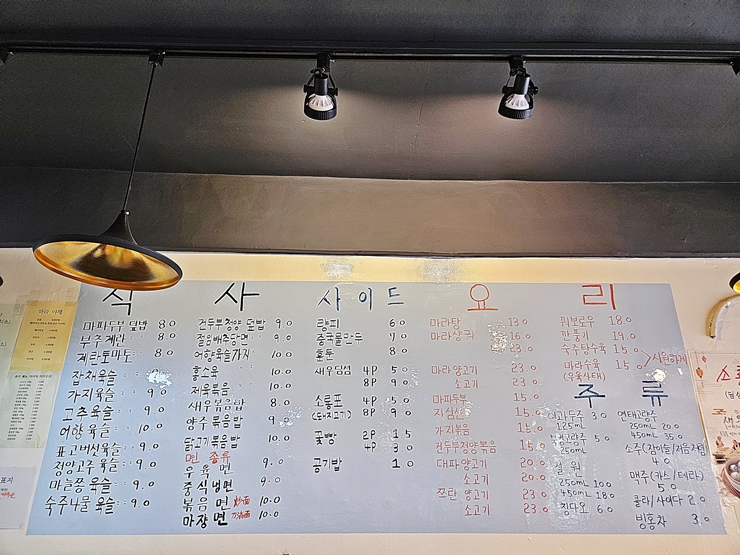 식 사
마파두부 덮밥 8.0
부추계란 8.0
계란토마토 8.0
잡채육슬 9.0
가지육슬 9.0
고추육슬 9.0
어향육슬 10.0
표고버섯육슬 9.0
청양고추 육슬 9.0
마늘쫑 육슬 9.0
숙주나물 육슬 9.0
건두부청양 덮밥 9.0
절임배추당면 9.0
어향육슬가지 10.0
홍소육 10.0
제육볶음 10.0
새우볶음밥 8.0
양주 볶음밥 9.0
닭고기볶음밥 10.0
면 종류
우육면 9.0
중식냉면 9.0
볶음면 炒面 10.0
마장면 10.0
사이드
량피 6.0
중국물만두 7.0
훈툰 8.0
새우딤섬 4P 5.0
8P 9.0
소룡포 4P 5.0
(돼지고기) 8P 9.0
꽃빵 2P 1.5
4P 3.0
공기밥 1.0
요 리
마라탕 13.0
마라샹궈 16.0
23.0
마라양고기 23.0
소고기 23.0
마파두부 15.0
지삼선 15.0
가지볶음 15.0
건두부청양볶음 15.0
대파양고기 20.0
소고기 20.0
쯔란 양고기 23.0
소고기 23.0
꿔보로우 18.0
깐풍기 19.0
숙주탕수육 15.0
마라수육 15.0
(우육사태)
시원하게
주 류
이과두주 3.0
125ml
5.0
250ml
설원
250ml 10.0
450ml 18.0
칭다오 6.0
연태고량주
250ml 20.0
450ml 35.0
소주(참이슬/처음처럼)
4.0
맥주(카스/테라)
5.0
콜라/사이다 2.0
빙홍차 3.0